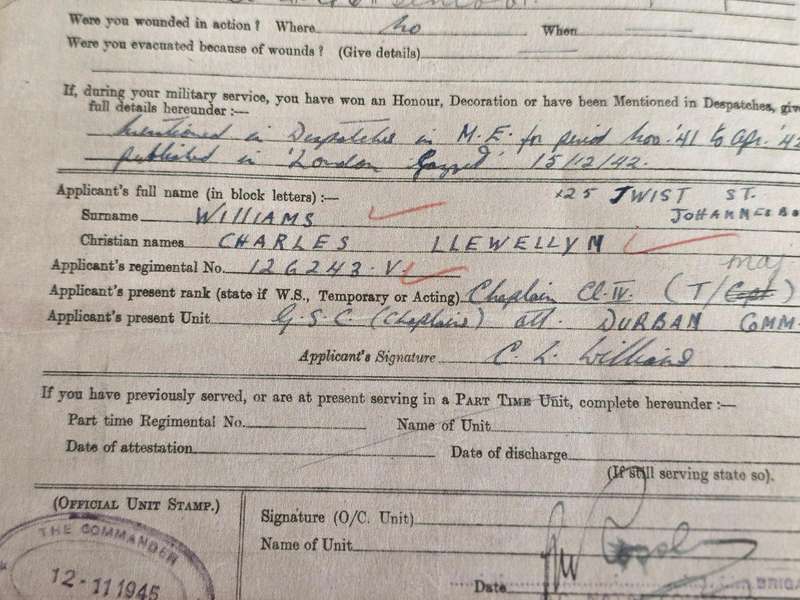 Were you wounded in action? Where No When
Were you evacuated because of wounds? (Give details)
If, during your military service, you have won an Honour, Decoration or have been Mentioned in Despatches, give
full details hereunder :—
Mentioned in Despatches in M.E. for period Nov. '41 to Apr. '42
published in 'London Gazzet' 15/12/42.
Applicant's full name (in block letters) :— 25 JWIST ST.
Surname WILLIAMS JOHANNESB
Christian names CHARLES LLEWELLYN
Applicant's regimental No. 126243.V.
maj
Applicant's present rank (state if W.S., Temporary or Acting) Chaplain Cl. IV. (T/Capt)
Applicant's present Unit G.S.C. (Chaplains) att. DURBAN COMM
Applicant's Signature C. L. Williams
If you have previously served, or are at present serving in a PART TIME UNIT, complete hereunder :—
Part time Regimental No. Name of Unit
Date of attestation Date of discharge
(If still serving state so).
(OFFICIAL UNIT STAMP.) Signature (O/C. Unit)
Name of Unit
THE COMMANDER
12-11 1945
Date BRIGA